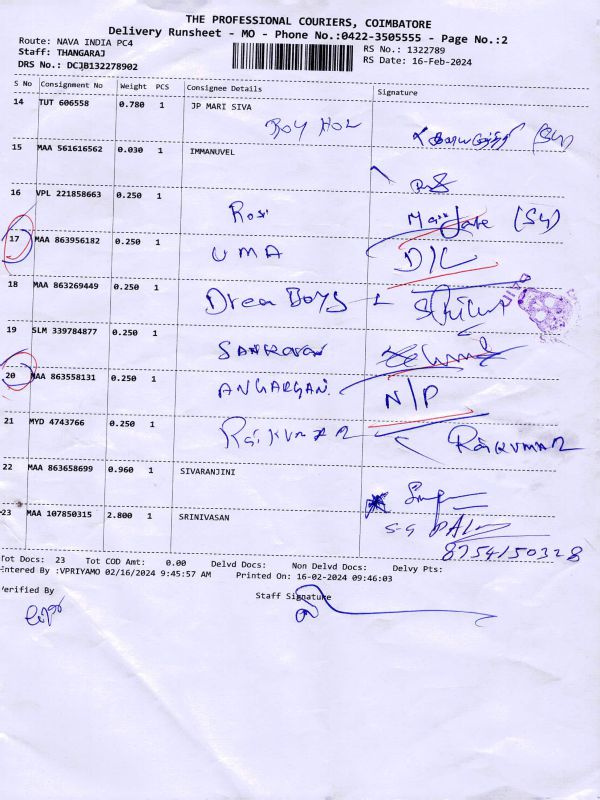 THE PROFESSIONAL COURIERS, COIMBATORE
Delivery Runsheet - MO - Phone No.:0422-3505555 - Page No.:2
Route: NAVA INDIA PC4
RS No.: 1322789
Staff: THANGARAJ
RS Date: 16-Feb-2024
DRS No.: DCJB132278902
S No Consignment No Weight PCS Consignee Details Signature
14 TUT 606558 0.780 1 JP MARI SIVA
15 MAA 561616562 0.030 1 IMMANUVEL
16 VPL 221858663 0.250 1
17 MAA 863956182 0.250 1 UMA D/L
18 MAA 863269449 0.250 1 Dream Boys
19 SLM 339784877 0.250 1
20 MAA 863558131 0.250 1 N/P
21 MYD 4743766 0.250 1 RajKUMAR RajKUMAR
22 MAA 863658699 0.960 1 SIVARANJINI
23 MAA 107850315 2.800 1 SRINIVASAN
8754150328
Tot Docs: 23 Tot COD Amt: 0.00 Delvd Docs: Non Delvd Docs: Delvy Pts:
Entered By :VPRIYAMO 02/16/2024 9:45:57 AM Printed On: 16-02-2024 09:46:03
Verified By
Staff Signature